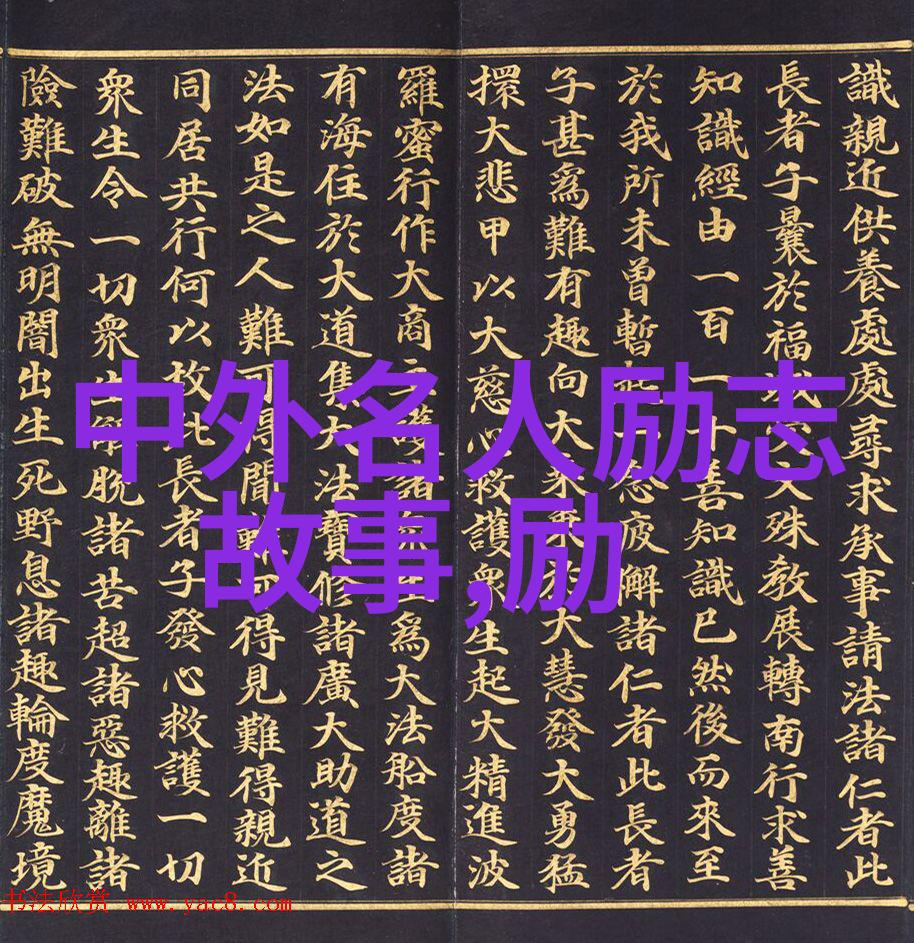 識親近供養處處尋求承事請法諸仁者此
長者子曩於福城受文殊教展轉南行求善
知識經由一百一十善知識已然後而來至
於我所未曾暫起一念疲解諸仁者此長者
子甚爲難有趣向大乘乘於大慧發大勇猛
擐大悲甲以大慈心救護衆生起大精進波
羅蜜行作大商主護諸衆生爲大法船度諸
有海住於大道集大法寶修諸廣大助道之
法如是之人難可得聞難可得見難得親近
同居共行何以故此長者子發心救護一切
衆生令一切衆生解脫諸苦超諸惡趣離諸
險難破無明闇出生死野息諸趣輪度魔境
中外名人励志
故事,励
书法欣赏 www.yac8.com